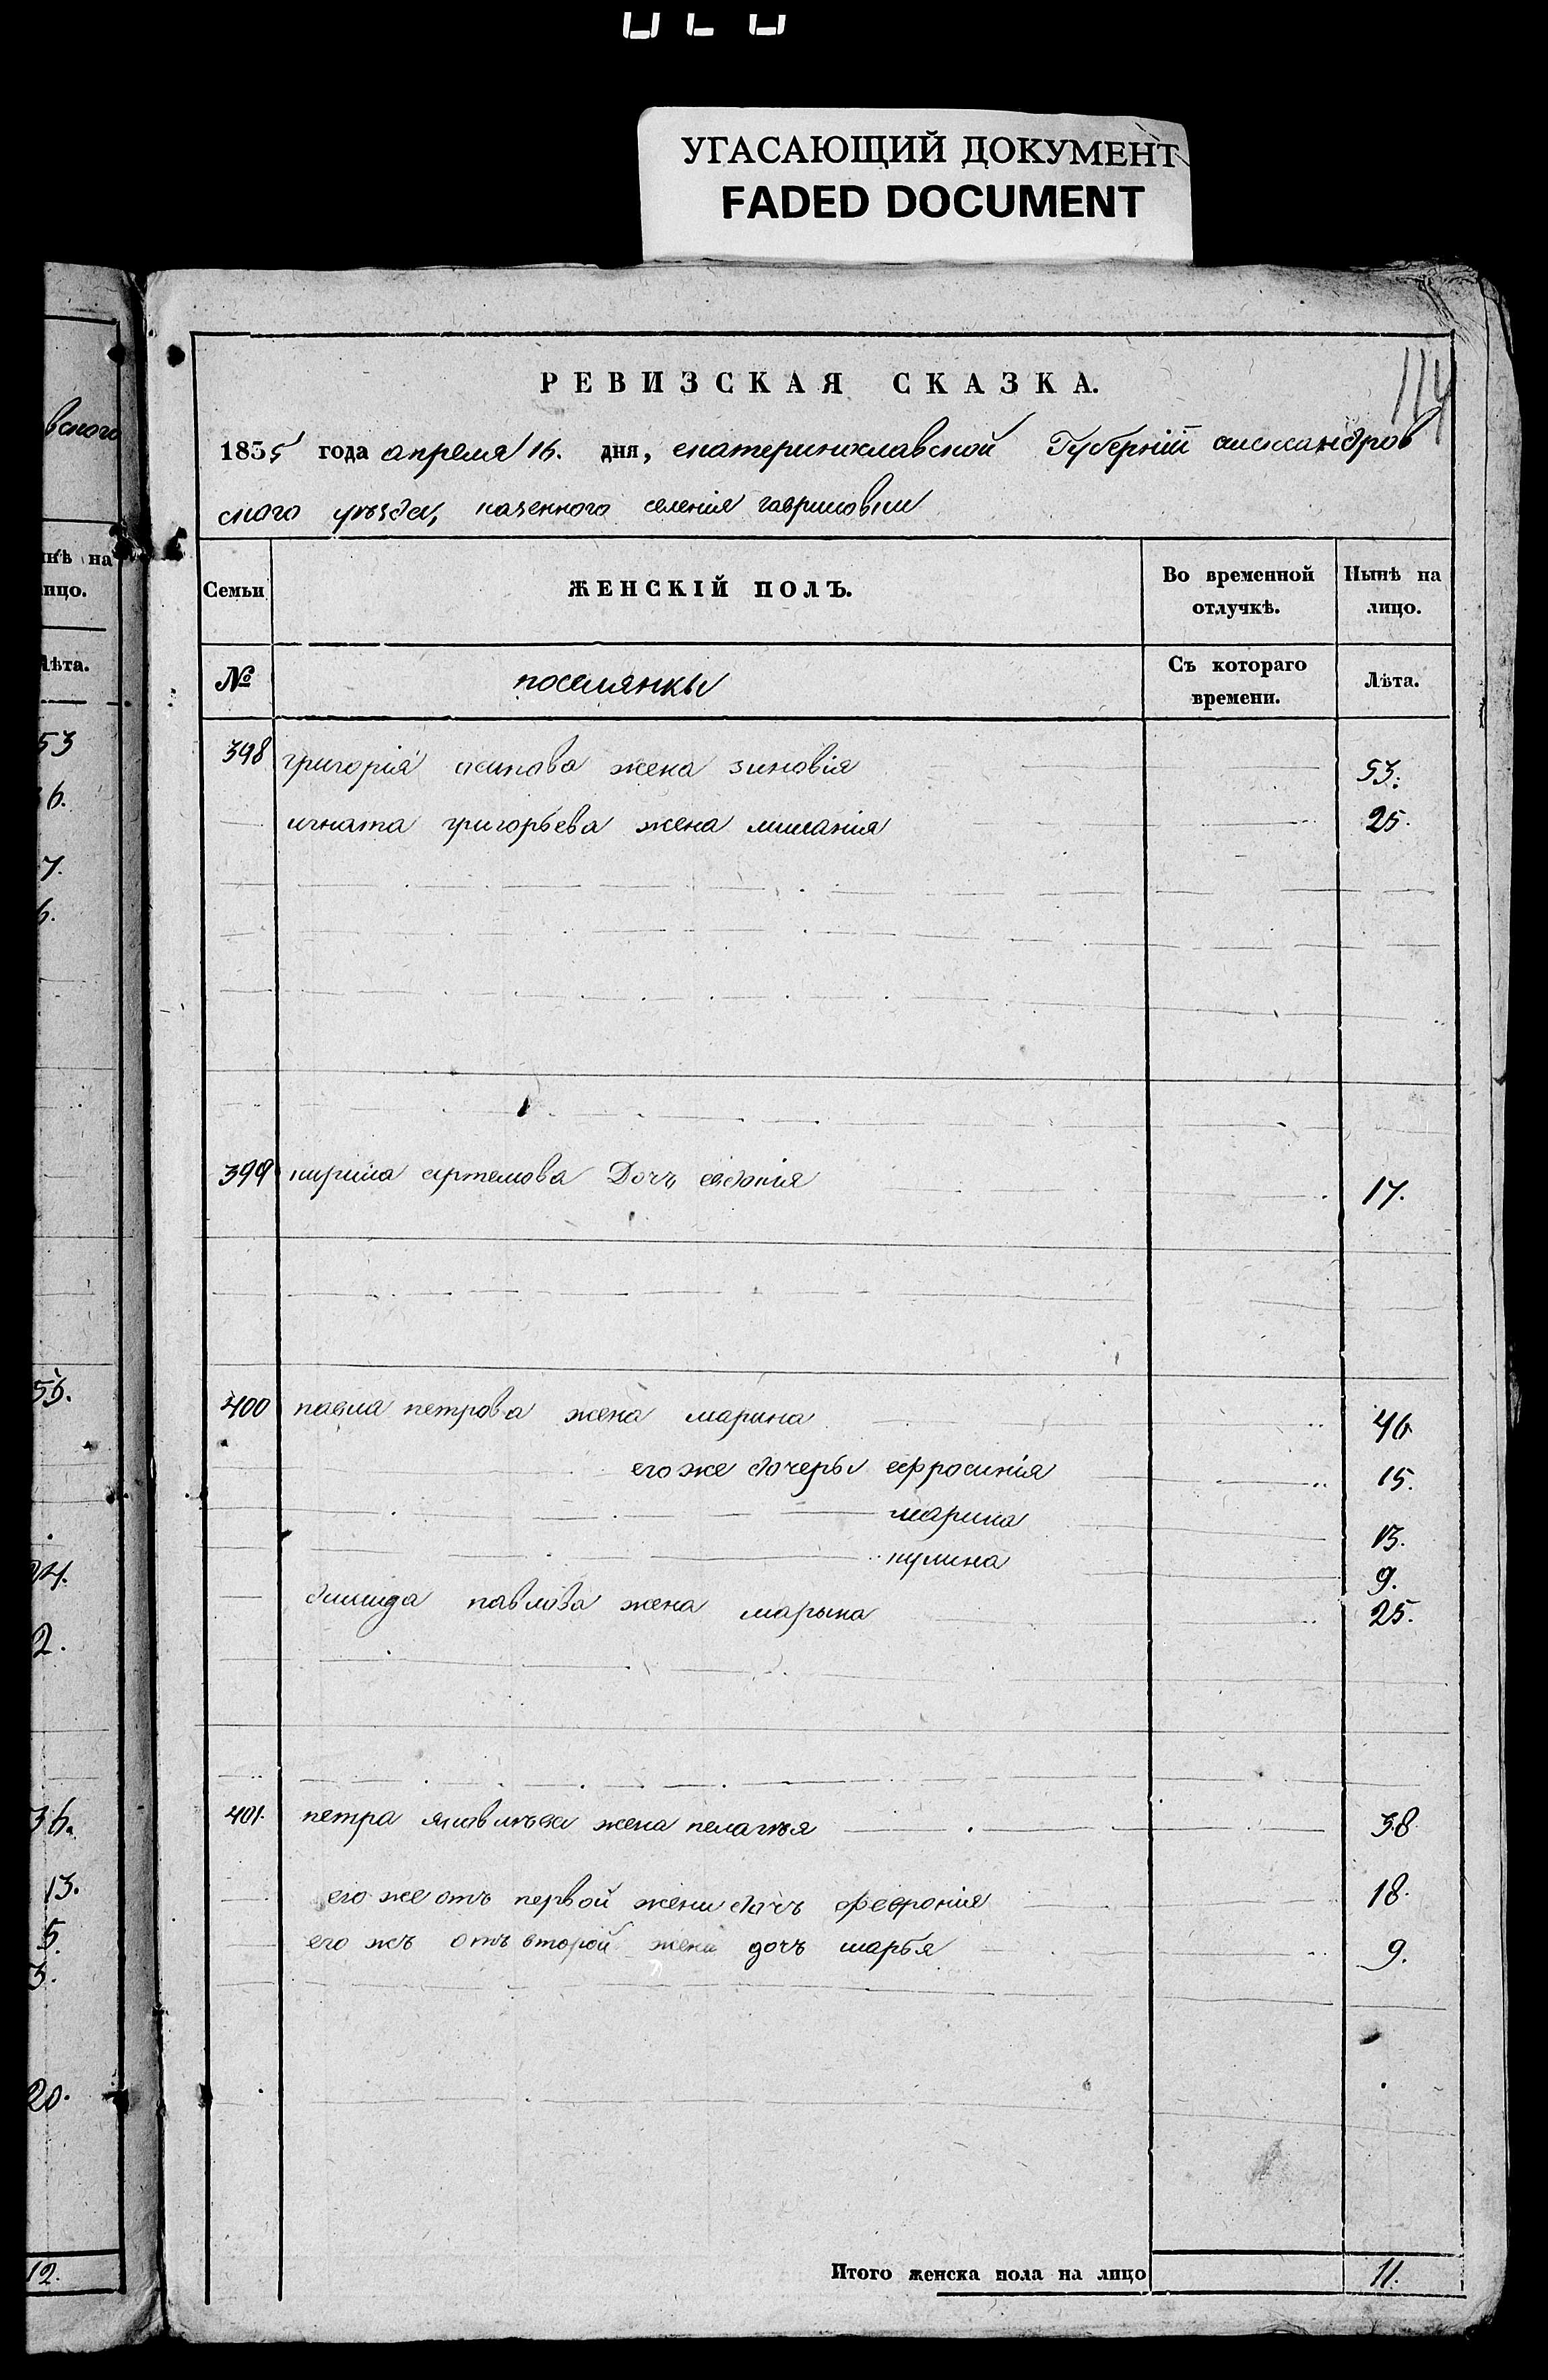 УГАСАЮЩИЙ ДОКУМЕНТ
FADED DOCUMENT
вского
114
РЕВИЗСКАЯ СКАЗКА.
1835 года апреля 16. дня, екатеринославской Губерніи александров
ского уѣзда, казенного селенія гавриловки
Семьи
ЖЕНСКІЙ ПОЛЪ.
Во временной отлучкѣ.
Нынѣ на лицо.
№
поселянкы
Съ котораго времени.
Лѣта.
398 григорія осипова жена зиновія 53.
игната григорьева жена миланія 25.
399 кирила артемова Дочъ евдокія 17.
400 павла петрова жена марина 46
его же дочеры ефросинія 15.
марина 13.
кулина 9.
павлова жена марына 25.
401. петра яковлѣва жена пелагѣя 38
его же отъ первой жени дочъ феврония 18.
его жъ отъ второй жени дочъ марья 9.
Итого женска пола на лицо 11.
нѣ на
ицо.
Лѣта.
53
6.
7.
6.
2.
36.
13.
5.
3.
20.
12.